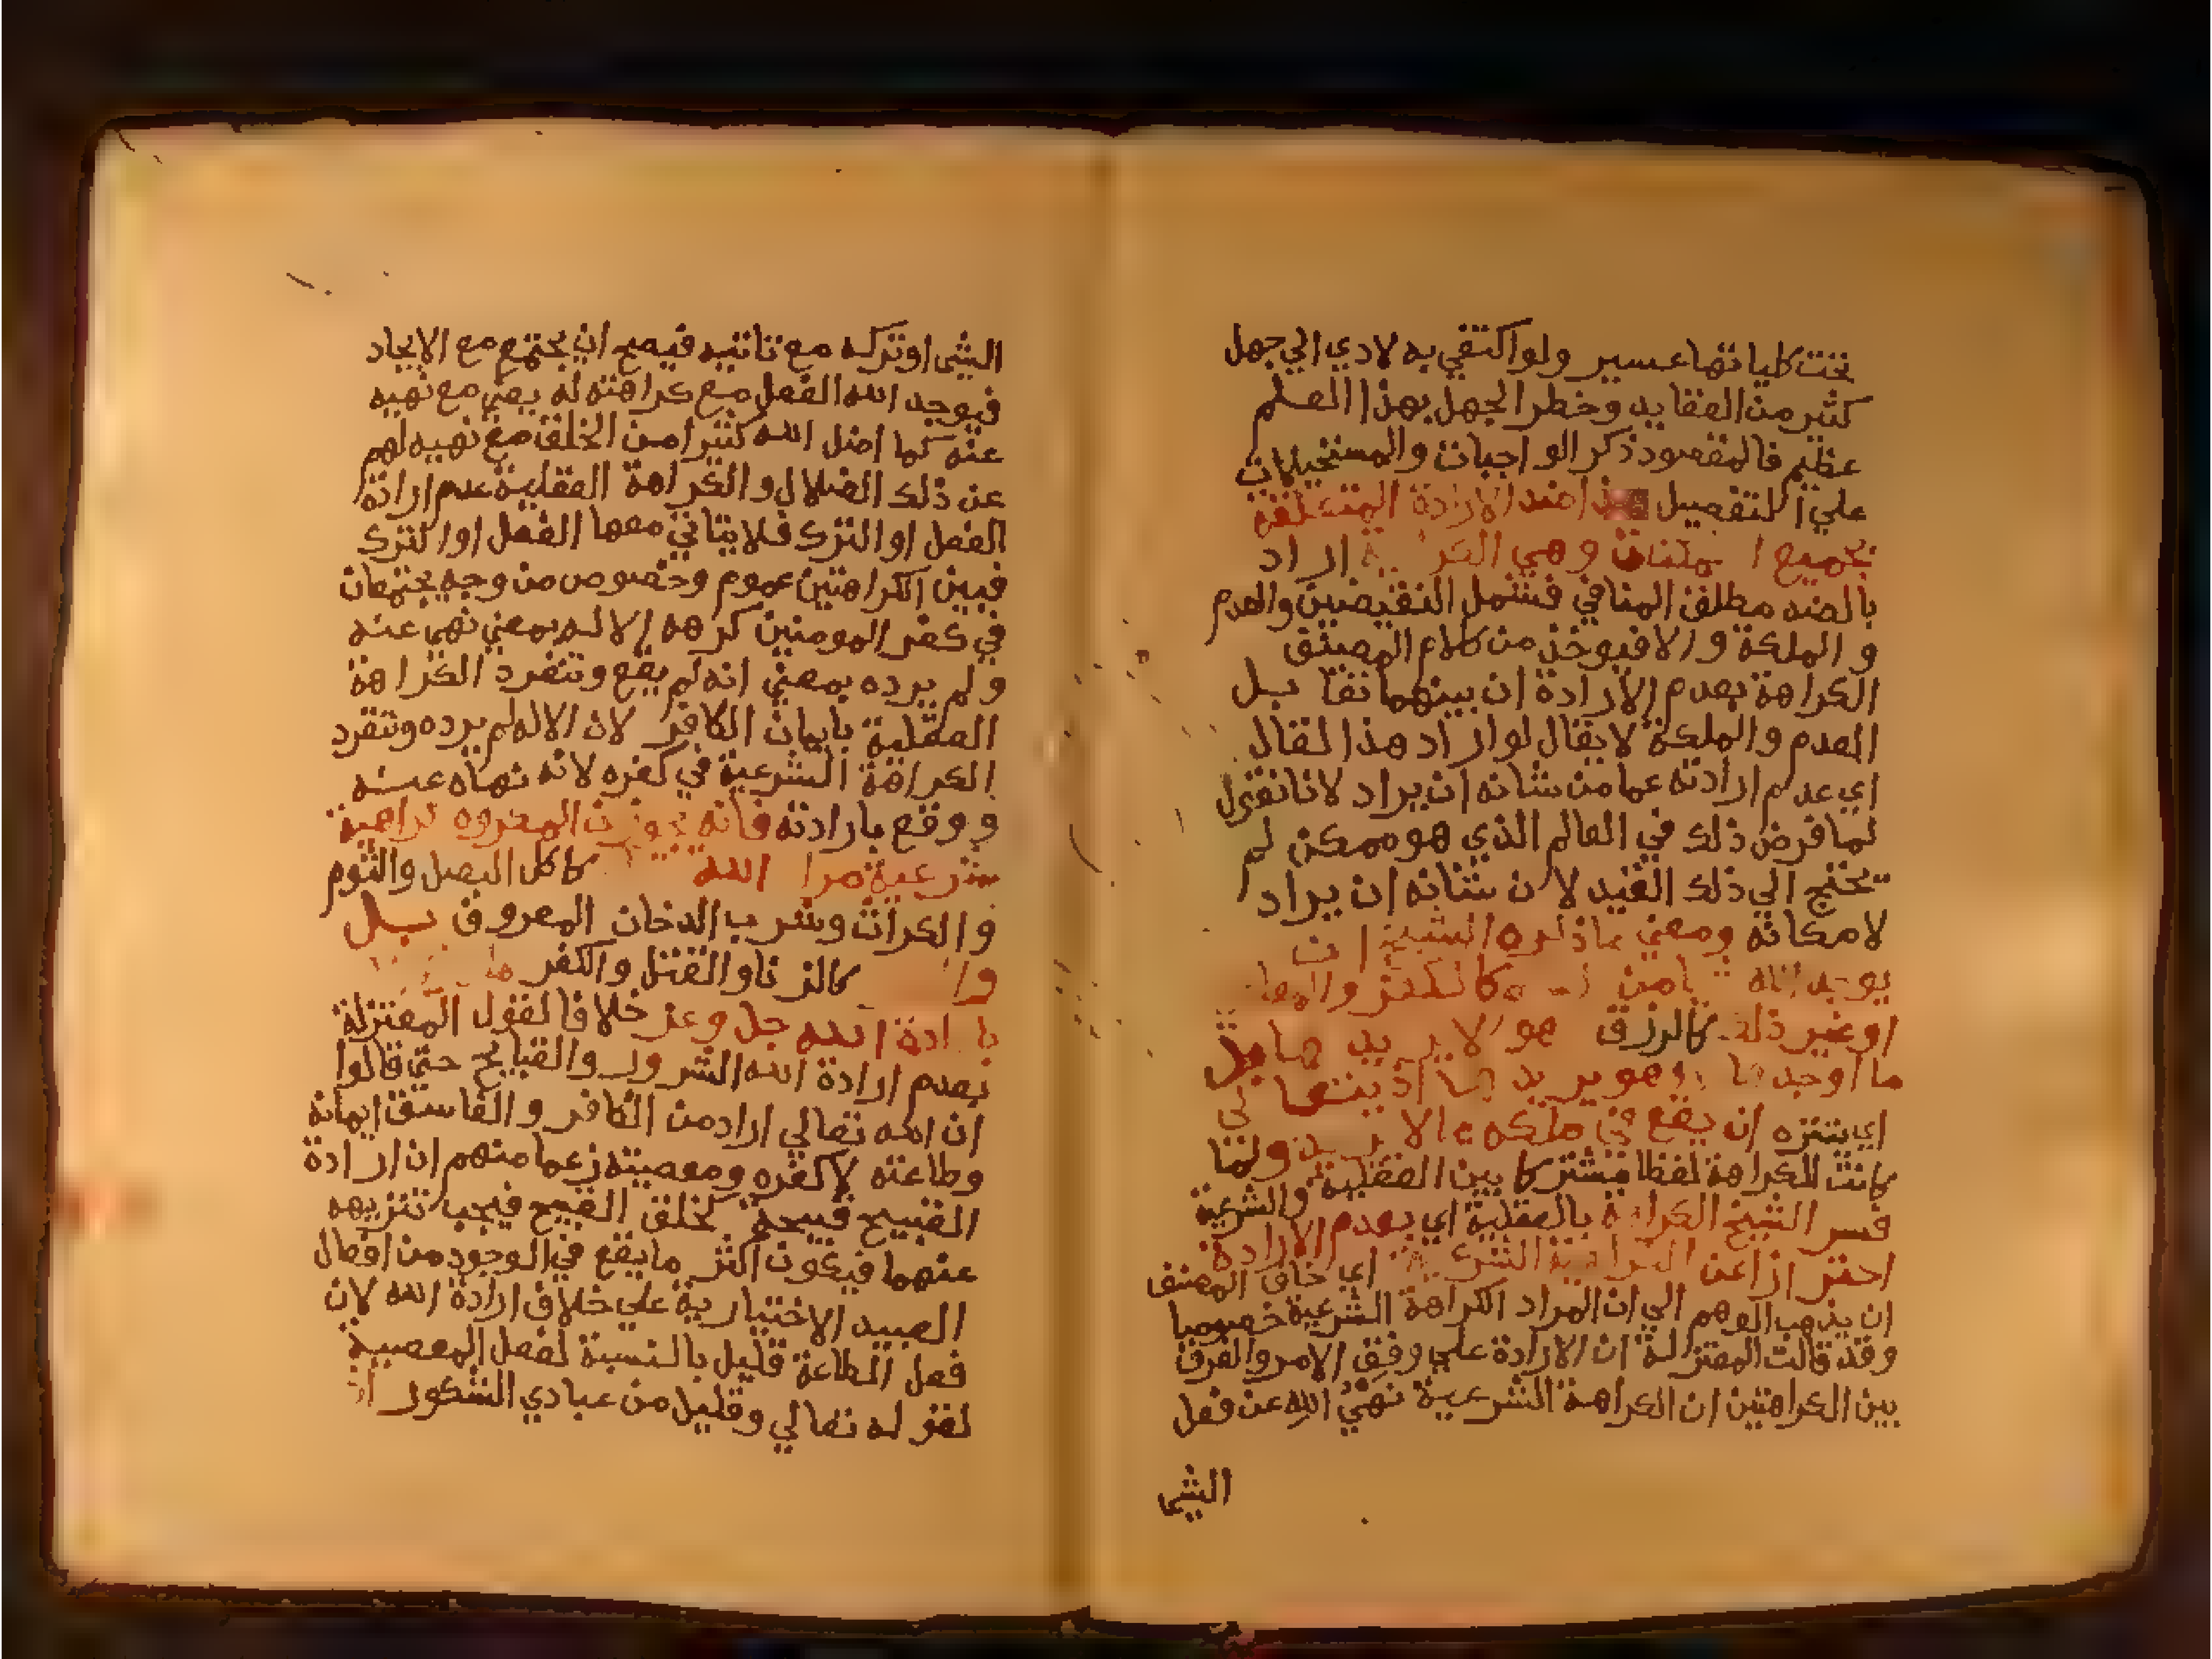 تحت كلياتها عسير ولو اكتفي به لادي الي جهل
كثير من العقايد وخطر الجهل بهذا العلم
عظيم فالمقصود ذكر الواجبات والمستحيلات
علي التفصيل هذا ضد الارادة المتعلقة
بجميع وهي اراد
بالضد مطلق المنافي فشمل النقيضين والعدم
والملكة والا فيوخذ من كلام المصنف
الكراهة بعدم الارادة ان بينهما تقابل
العدم والملكة لا يقال لو اراد هذا لقال
اي عدم ارادته عما من شانه ان يراد لانا نقول
لما فرض ذلك في العالم الذي هو ممكن لم
يحتج الي ذلك القيد لان شانه ان يراد
لامكانه ومعني ما ذكره الشيخ ان
يوجد الله من كالكفر
او غير ذلك كالرزق هو لا يريدها بل
ما اوجدها وهو يريدها اذ يتعالي
اي يتنزه ان يقع في ملكه ما لا يريد ولما
كانت الكراهة لفظا مشتركا بين العقلية والشرعية
فسر الشيخ الكراهة بالعقلية اي بعدم الارادة
احترازا عن الكراهية الشرعية اي خاف المصنف
ان يذهب الوهم الي ان المراد الكراهة الشرعية خصوصا
وقد قالت المعتزلة ان الارادة علي وفق الامر والفرق
بين الكراهتين ان الكراهة الشرعية نهي الله عن فعل
الشي
الشي او تركه مع تانيه فيصح ان يجتمع مع الايجاد
فيوجد الله الفعل مع كراهته له يعني مع نهيه
عنه كما اضل الله كثيرا من الخلق مع نهيه لهم
عن ذلك الضلال والكراهة العقلية عدم ارادة
الفعل او الترك فلا يتاتي معها الفعل او الترك
فبين الكراهتين عموم وخصوص من وجه يجتمعان
في كفر المومنين كرهه الاله بمعني نهي عنه
ولم يرده بمعني انه لم يقع وتنفرد الكراهة
العقلية بايمان الكافر لان الاله لم يرده وتنفرد
الكراهة الشرعية في كفره لانه نهاه عنه
ووقع بارادته فانه يجوز ان المكروه كراهية
شرعية مرا الله كاكل البصل والثوم
والكراث وشرب الدخان المعروف بل
وا كالزنا والقتل والكفر
بارادة الله جل وعز خلافا لقول المعتزلة
بعدم ارادة الله الشرور والقبايح حتي قالوا
ان الله تعالي اراد من الكافر والفاسق ايمانه
وطاعته لا كفره ومعصيته زعما منهم ان ارادة
القبيح قبيحة كخلق القبيح فيجب تنزيهه
عنهما فيكون اكثر ما يقع في الوجود من افعال
العبيد الاختيارية علي خلاف ارادة الله لان
فعل الطاعة قليل بالنسبة لفعل المعصية
لقوله تعالي وقليل من عبادي الشكور